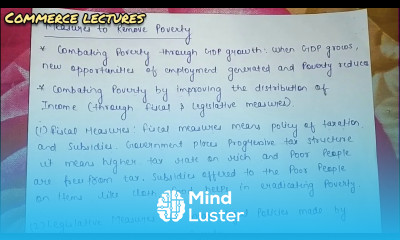 COMMERCE LECTURES
Measures to Remove Poverty
* Combating Poverty through GDP growth: When GDP grows,
new opportunities of employment generated and Poverty reduce
* Combating Poverty by improving the distribution of
Income (through fiscal & legislative measures)
(1) Fiscal Measures: fiscal measures means policy of taxation
and Subsidies. Government places Progressive tax structure
it means higher tax rate on rich and Poor People
are free from tax. Subsidies offered to the Poor People
on items like helps in eradicating Poverty
Legislative Measures Policies made by
Mind
Luster